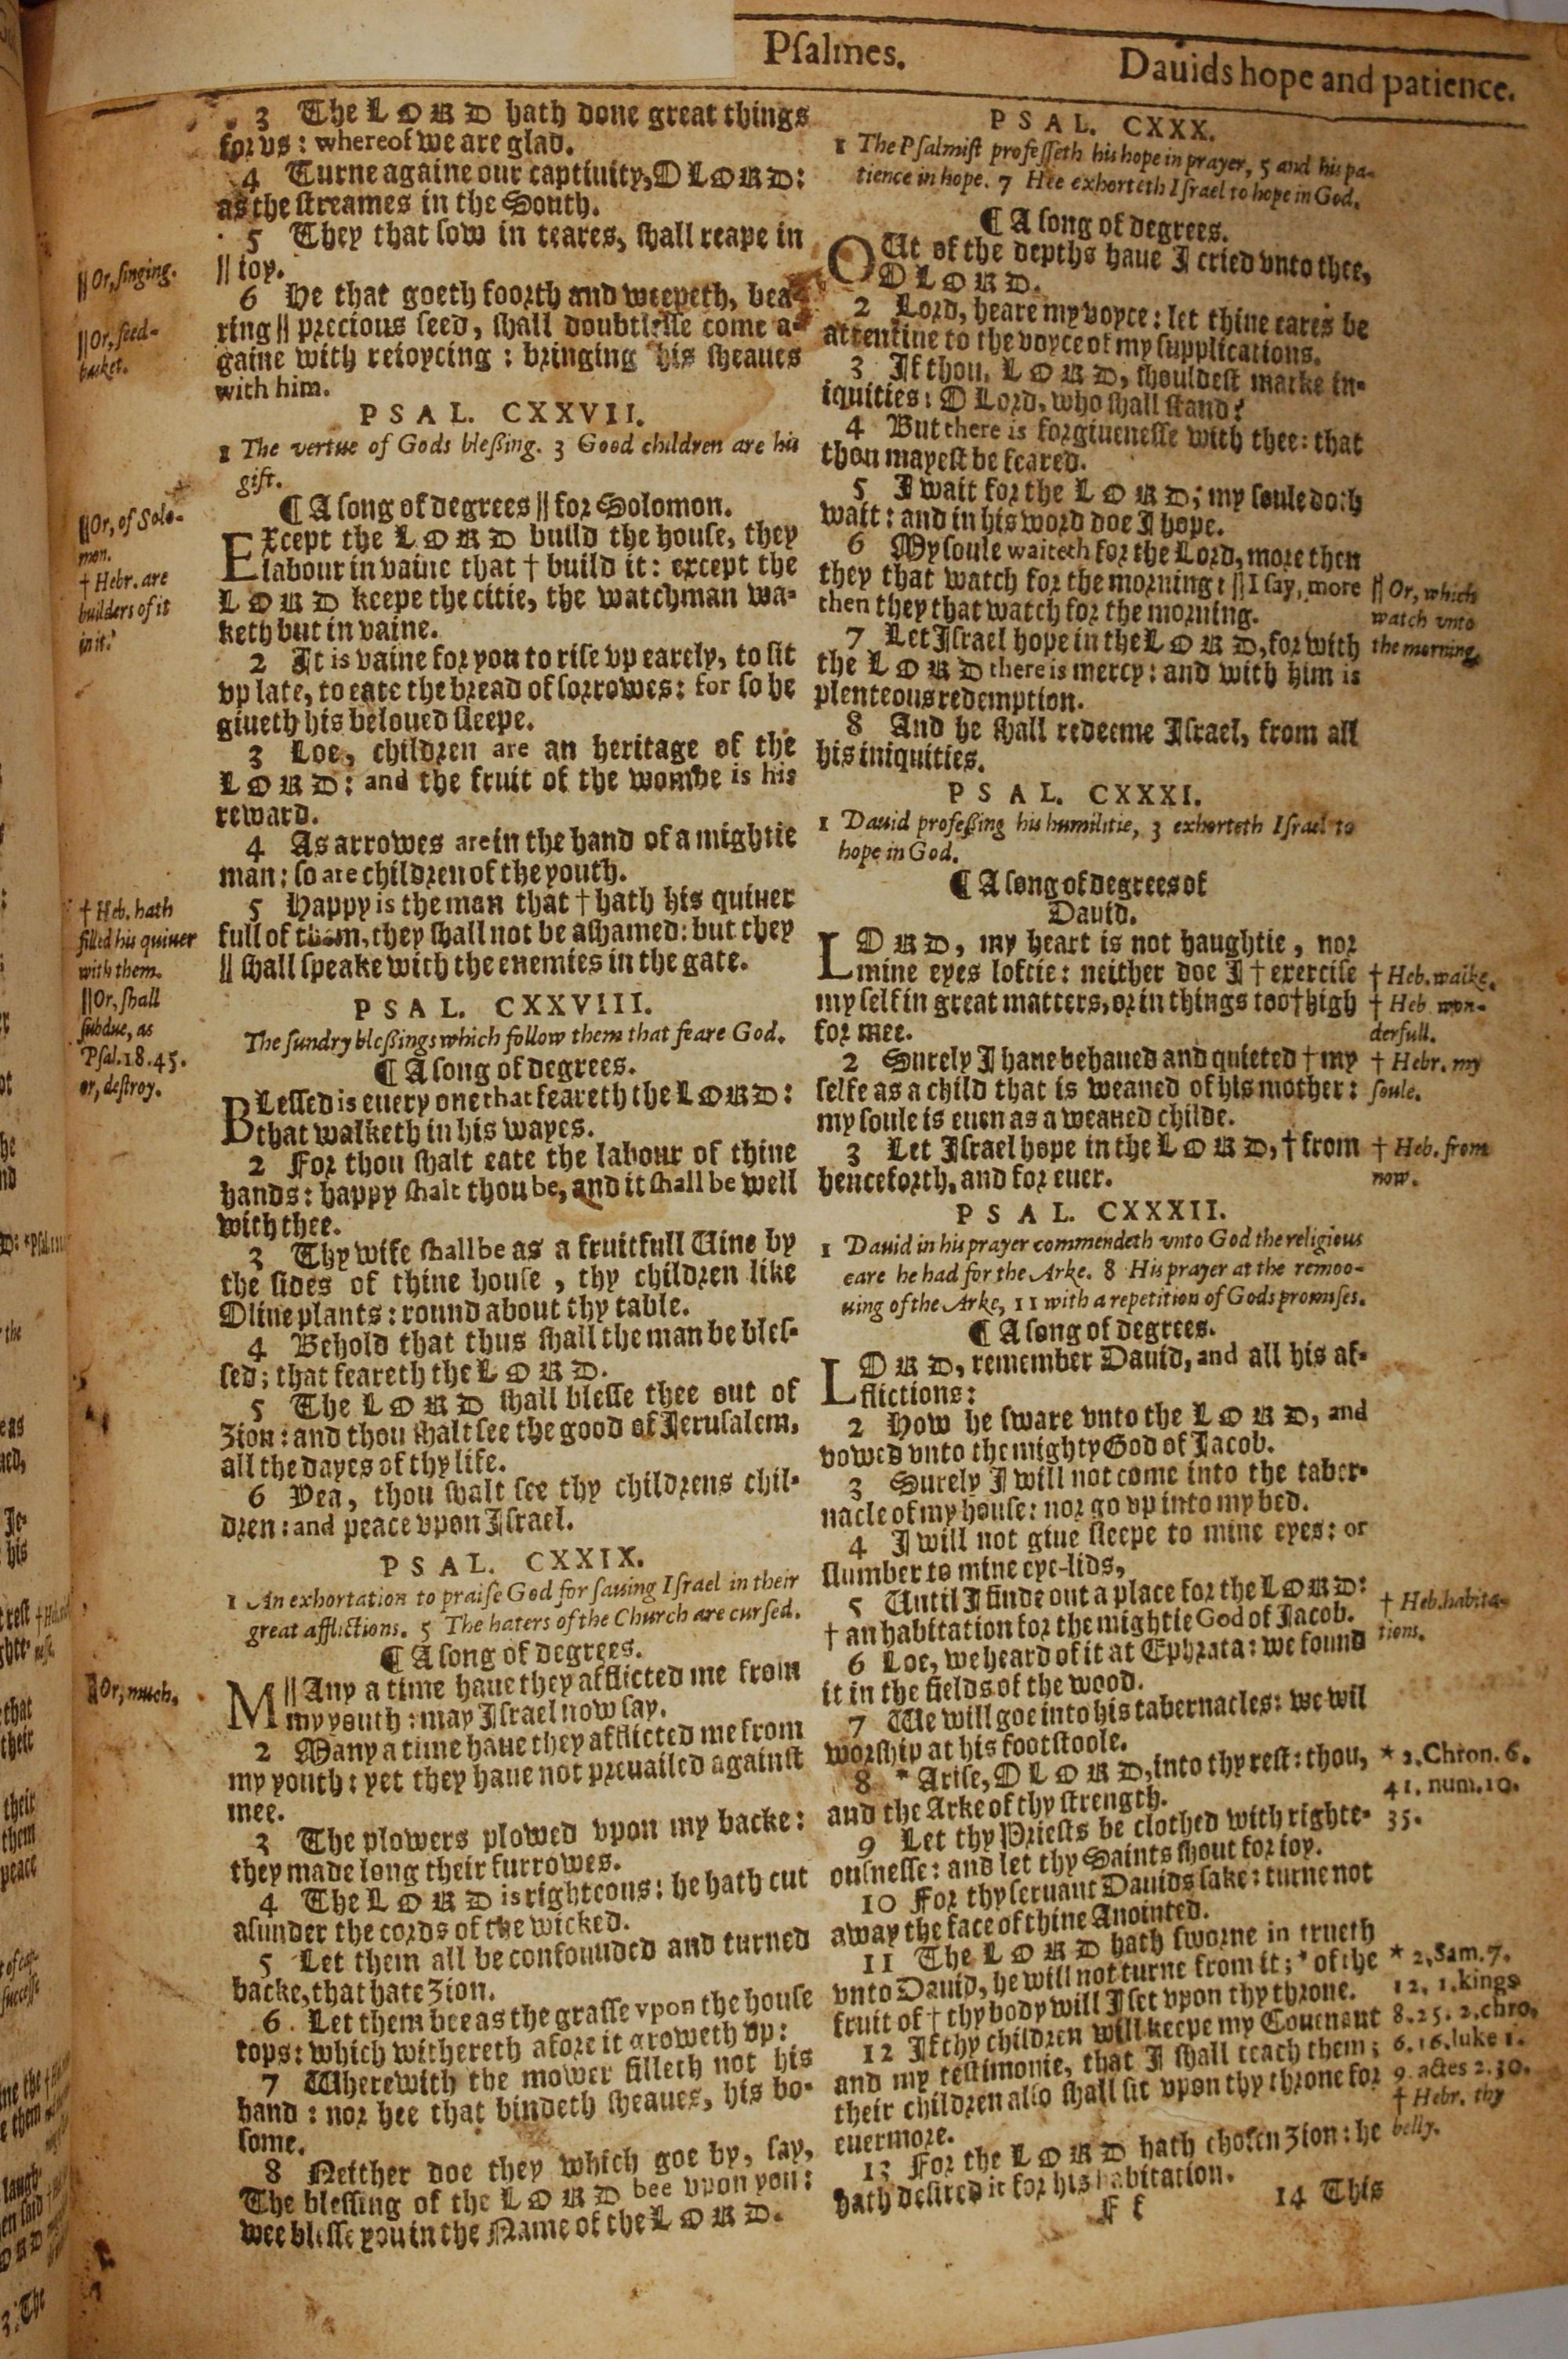 Psalmes.
Dauids hope and patience.
3 The LORD hath done great things
for vs: whereof we are glad.
4 Turne againe our captiuity, O LORD:
as the streames in the South.
5 They that sow in teares, shall reape in
|| ioy.
6 He that goeth foorth and weepeth, bea-
ring || precious seed, shall doubtlesse come a-
gaine with reioycing: bringing his sheaues
with him.
|| Or, singing.
|| Or, seed-
basket.
PSAL. CXXVII.
1 The vertue of Gods blessing. 3 Good children are his
gift.
¶ A song of degrees || for Solomon.
EXcept the LORD build the house, they
labour in vaine that † build it: except the
LORD keepe the citie, the watchman wa-
keth but in vaine.
2 It is vaine for you to rise vp earely, to sit
vp late, to eate the bread of sorrowes: for so he
giueth his beloued sleepe.
3 Loe, children are an heritage of the
LORD: and the fruit of the wombe is his
reward.
4 As arrowes are in the hand of a mightie
man: so are children of the youth.
5 Happy is the man that † hath his quiuer
full of them, they shall not be ashamed: but they
|| shall speake with the enemies in the gate.
|| Or, of Solo-
mon.
† Hebr. are
builders of it
in it.
† Heb. hath
filled his quiuer
with them.
|| Or, shall
subdue, as
Psal. 18. 45.
or, destroy.
PSAL. CXXVIII.
The sundry blessings which follow them that feare God.
¶ A song of degrees.
BLessed is euery one that feareth the LORD:
that walketh in his wayes.
2 For thou shalt eate the labour of thine
hands: happy shalt thou be, and it shall be well
with thee.
3 Thy wife shall be as a fruitfull Uine by
the sides of thine house, thy children like
Oliue plants: round about thy table.
4 Behold that thus shall the man be bles-
sed; that feareth the LORD.
5 The LORD shall blesse thee out of
Zion: and thou shalt see the good of Ierusalem,
all the dayes of thy life.
6 Yea, thou shalt see thy childrens chil-
dren: and peace vpon Israel.
PSAL. CXXIX.
1 An exhortation to praise God for sauing Israel in their
great afflictions. 5 The haters of the Church are cursed.
¶ A song of degrees.
M||Any a time haue they afflicted me from
my youth: may Israel now say.
2 Many a time haue they afflicted me from
my youth: yet they haue not preuailed against
mee.
3 The plowers plowed vpon my backe:
they made long their furrowes.
4 The LORD is righteous: he hath cut
asunder the cords of the wicked.
5 Let them all be confounded and turned
backe, that hate Zion.
6 Let them bee as the grasse vpon the house
tops: which withereth afore it groweth vp:
7 Wherewith the mower filleth not his
hand: nor hee that bindeth sheaues, his bo-
some.
8 Neither doe they which goe by, say,
The blessing of the LORD bee vpon you:
wee blesse you in the Name of the LORD.
|| Or, much.
PSAL. CXXX.
1 The Psalmist professeth his hope in prayer, 5 and his pa-
tience in hope. 7 Hee exhorteth Israel to hope in God.
¶ A song of degrees.
OUt of the depths haue I cried vnto thee,
O LORD.
2 Lord, heare my voyce: let thine eares be
attentiue to the voyce of my supplications.
3 If thou, LORD, shouldest marke in-
iquities: O Lord, who shall stand?
4 But there is forgiuenesse with thee: that
thou mayest be feared.
5 I wait for the LORD; my soule doth
wait: and in his word doe I hope.
6 My soule waiteth for the Lord, more then
they that watch for the morning: || I say, more
then they that watch for the morning.
7 Let Israel hope in the LORD, for with
the LORD there is mercy: and with him is
plenteous redemption.
8 And he shall redeeme Israel, from all
his iniquities.
|| Or, which
watch vnto
the morning.
PSAL. CXXXI.
1 Dauid professing his humilitie, 3 exhorteth Israel to
hope in God.
¶ A song of degrees of
Dauid.
LORD, my heart is not haughtie, nor
mine eyes loftie: neither doe I † exercise
my self in great matters, or in things too † high
for mee.
2 Surely I haue behaued and quieted † my
selfe as a child that is weaned of his mother:
my soule is euen as a weaned childe.
3 Let Israel hope in the LORD, † from
henceforth, and for euer.
† Heb. walke.
† Heb. won-
derfull.
† Hebr. my
soule.
† Heb. from
now.
PSAL. CXXXII.
1 Dauid in his prayer commendeth vnto God the religious
care he had for the Arke. 8 His prayer at the remoo-
uing of the Arke, 11 with a repetition of Gods promises.
¶ A song of degrees.
LORD, remember Dauid, and all his af-
flictions:
2 How he sware vnto the LORD, and
vowed vnto the mighty God of Iacob.
3 Surely I will not come into the taber-
nacle of my house: nor go vp into my bed.
4 I will not giue sleepe to mine eyes: or
slumber to mine eye-lids,
5 Until I finde out a place for the LORD:
† an habitation for the mightie God of Iacob.
6 Loe, we heard of it at Ephrata: we found
it in the fields of the wood.
7 We will goe into his tabernacles: we wil
worship at his footstoole.
8 * Arise, O LORD, into thy rest: thou,
and the Arke of thy strength.
9 Let thy Priests be clothed with righte-
ousnesse: and let thy Saints shout for ioy.
10 For thy seruant Dauids sake: turne not
away the face of thine Anointed.
11 The LORD hath sworne in trueth
vnto Dauid, he will not turne from it; * of the
fruit of † thy body will I set vpon thy throne.
12 If thy children will keepe my Couenant
and my testimonie, that I shall teach them;
their children also shall sit vpon thy throne for
euermore.
13 For the LORD hath chosen Zion: he
hath desired it for his habitation.
† Heb. habita-
tions.
* 2. Chron. 6.
41. num. 10.
35.
* 2. Sam. 7.
12. 1. kings
8. 25. 2. chro.
6. 16. luke 1.
9. actes 2. 30.
† Hebr. thy
belly.
F f
14 This